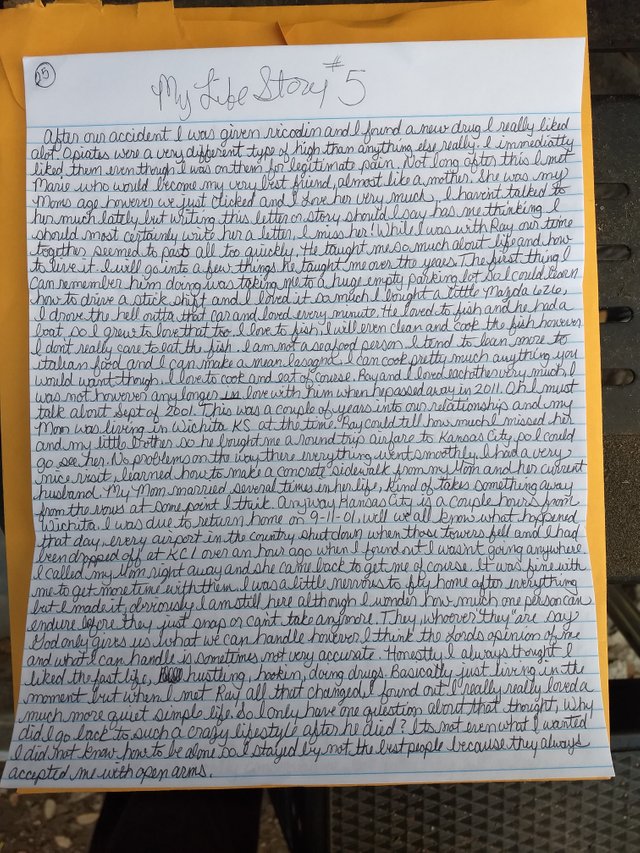 25
My Life Story #5
After our accident I was given vicodin and I found a new drug I really liked
alot. Opiates were a very different type of high than anything else really. I immediatly
liked them even though I was on them for legitimate pain. Not long after this I met
Marie who would become my very best friend, almost like a mother. She was my
Moms age however we just clicked and I Love her very much. I havint talked to
her much lately but writing this letter or story should I say has me thinking I
should most certainly write her a letter, I miss her! While I was with Ray our time
together seemed to past all too quickly. He taught me so much about life and how
to live it. I will go into a few things he taught me over the years. The first thing I
can remember him doing was taking me to a huge empty parking lot so I could learn
how to drive a stick shift and I loved it so much I bought a little Mazda 626,
I drove the hell outta that car and loved every minute. He loved to fish and he had a
boat so I grew to love that too. I love to fish I will even clean and cook the fish however
I dont really care to eat the fish. I am not a seafood person I tend to lean more to
italian food and I can make a mean lasagna. I can cook pretty much anything you
would want though. I love to cook and eat of course. Ray and I loved eachother very much I
was not however any longer in love with him when he passed away in 2011. Oh I must
talk about Sept of 2001. This was a couple of years into our relationship and my
Mom was living in Wichita KS at the time. Ray could tell how much I missed her
and my little brother so he bought me a round trip airfare to Kansas City so I could
go see her. No problems on the way there everything went smoothly. I had a very
nice visit, learned how to make a concrete sidewalk from my Mom and her current
husband. My Mom married several times in her life, kind of takes something away
from the vows at some point I think. Anyway Kansas City is a couple hours from
Wichita. I was due to return home on 9-11-01, well we all know what happened
that day, every airport in the country shut down when those towers fell and I had
been dropped off at KCI over an hour ago when I found out I wasn't going anywhere.
I called my Mom right away and she came back to get me of course. It was fine with
me to get more time with them. I was a little nervous to fly home after everything
but I made it, obviously I am still here although I wonder how much one person can
endure before they just snap or can't take anymore. They, whoever "they" are say
God only gives us what we can handle however I think the Lords opinion of me
and what I can handle is sometimes not very accurate. Honestly I always thought I
liked the fast life, hustling, hookin, doing drugs. Basically just living in the
moment but when I met Ray all that changed I found out I really really loved a
much more quiet simple life. So I only have one question about that thought, Why
did I go back to such a crazy lifestyle after he died? Its not even what I wanted
I did not know how to be alone so I stayed by not the best people because they always
accepted me with open arms.